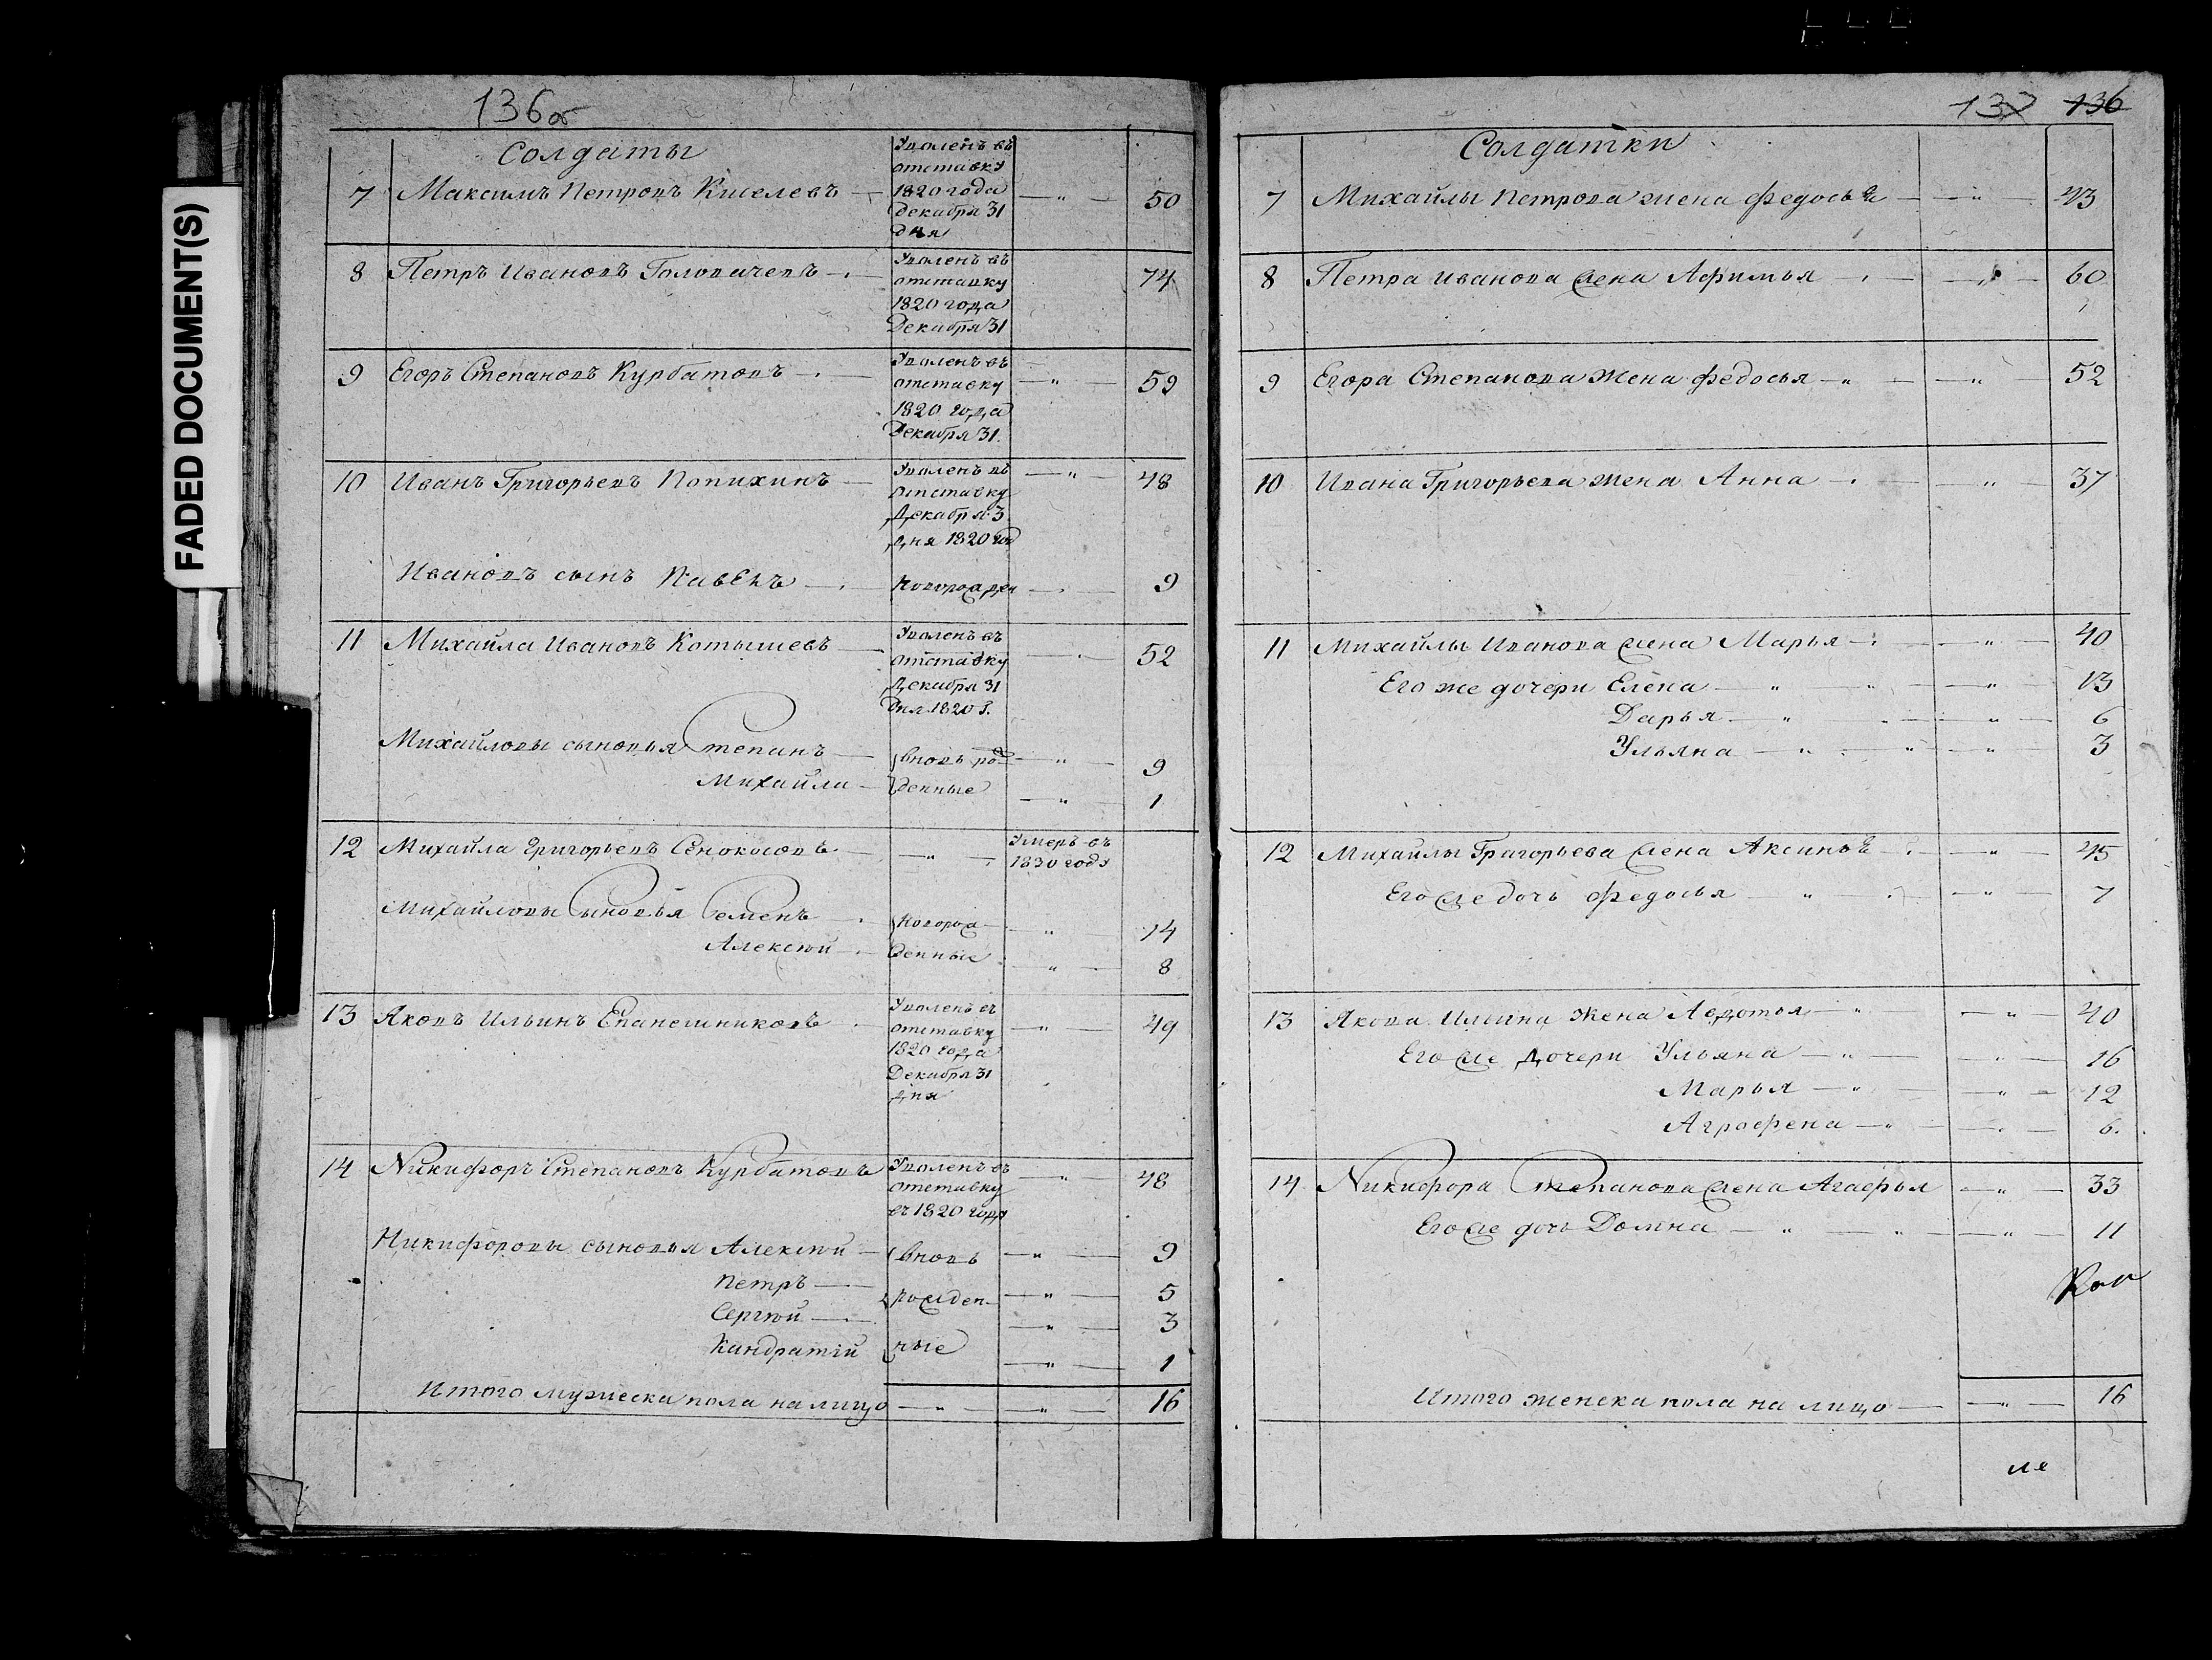 FADED DOCUMENT(S)
136об
Солдаты
7 Максимъ Петровъ Киселевъ — Уволенъ въ отставку 1820 года декабря 31 дня — " — 50
8 Петръ Ивановъ Головачевъ — Уволенъ въ отставку 1820 года Декабря 31 74
9 Егоръ Степановъ Курбатовъ — Уволенъ въ отставку 1820 года Декабря 31. — " — 59
10 Иванъ Григорьевъ Попихинъ — Уволенъ въ отставку Декабря 3 дня 1820 год — " — 48
Ивановъ сынъ Павелъ — новорожден — " — 9
11 Михайла Ивановъ Котышевъ — Уволенъ въ отставку Декабря 31 дня 1820 г. — " — 52
Михайловы сыновья Степанъ — вновь рож — " — 9
Михайла — денные — " — 1
12 Михайла Григорьевъ Сенокосовъ — " — Умеръ въ 1830 году
Михайловы сыновья Семенъ — новорож — " — 14
Алексѣй — денные — " — 8
13 Яковъ Ильинъ Епанешниковъ Уволенъ въ отставку 1820 года Декабря 31 дня — " — 49
14 Никифоръ Степановъ Курбатовъ Уволенъ въ отставку въ 1820 году — " — 48
Никифоровы сыновья Алексѣй — вновь — " — 9
Петръ — рожден — " — 5
Сергѣй — " — 3
Кандратій ные — " — 1
Итого мужеска пола на лицо — " — " — 16
137 136
Солдатки
7 Михайлы Петрова жена Федосья — " — 43
8 Петра Иванова жена Афимья — " — 60
9 Егора Степанова жена Федосья — " — " — 52
10 Ивана Григорьева жена Анна — " — 37
11 Михайлы Иванова жена Марья — " — 40
Его же дочери Елена — " — " — 13
Дарья — " — " — 6
Ульяна — " — " — 3
12 Михайлы Григорьева жена Аксинья — " — 45
Его же дочь Федосья — " — " — 7
13 Якова Ильина жена Авдотья — " — " — 40
Его же дочери Ульяна — " — " — 16
Марья — " — " — 12
Аграфена — " — " — 6.
14 Никифора Степанова жена Агафья — " — 33
Его же дочь Домна — " — " — 11
Итого женска пола на лицо — " — 16